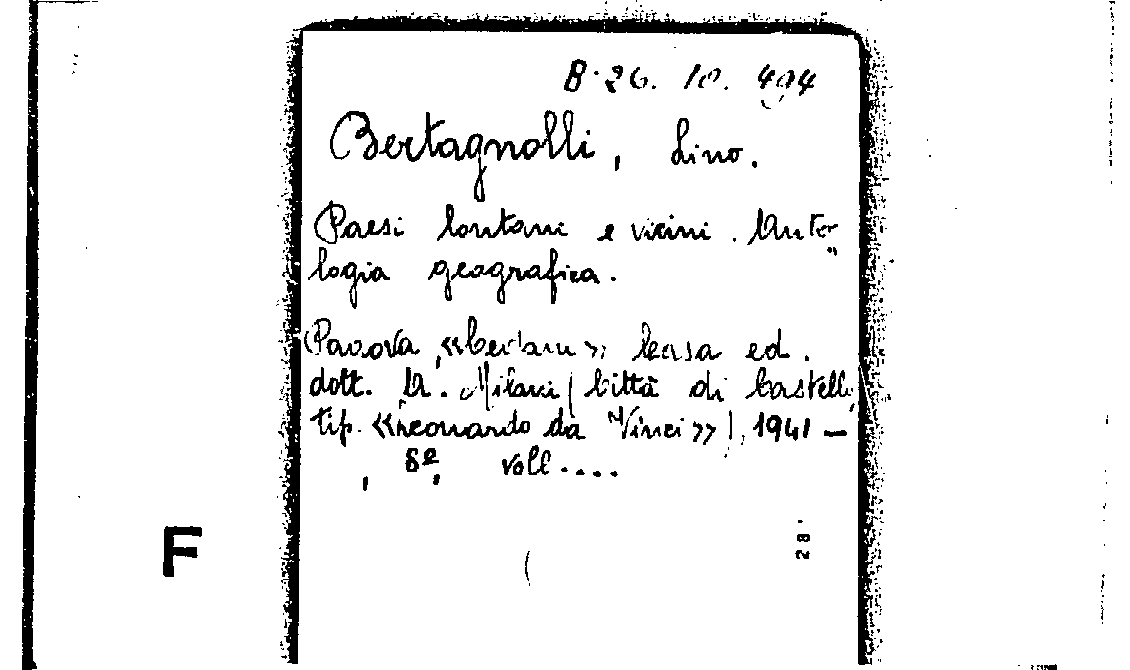 B. 26. 10. 494
Bertagnolli, Lino.
Paesi lontani e vicini. Anto-
logia geografica.
Padova, «Cedam» Casa ed.
dott. A. Milani (Città di Castello,
tip. «Leonardo da Vinci»), 1941 —
, 8º, voll....
F
28